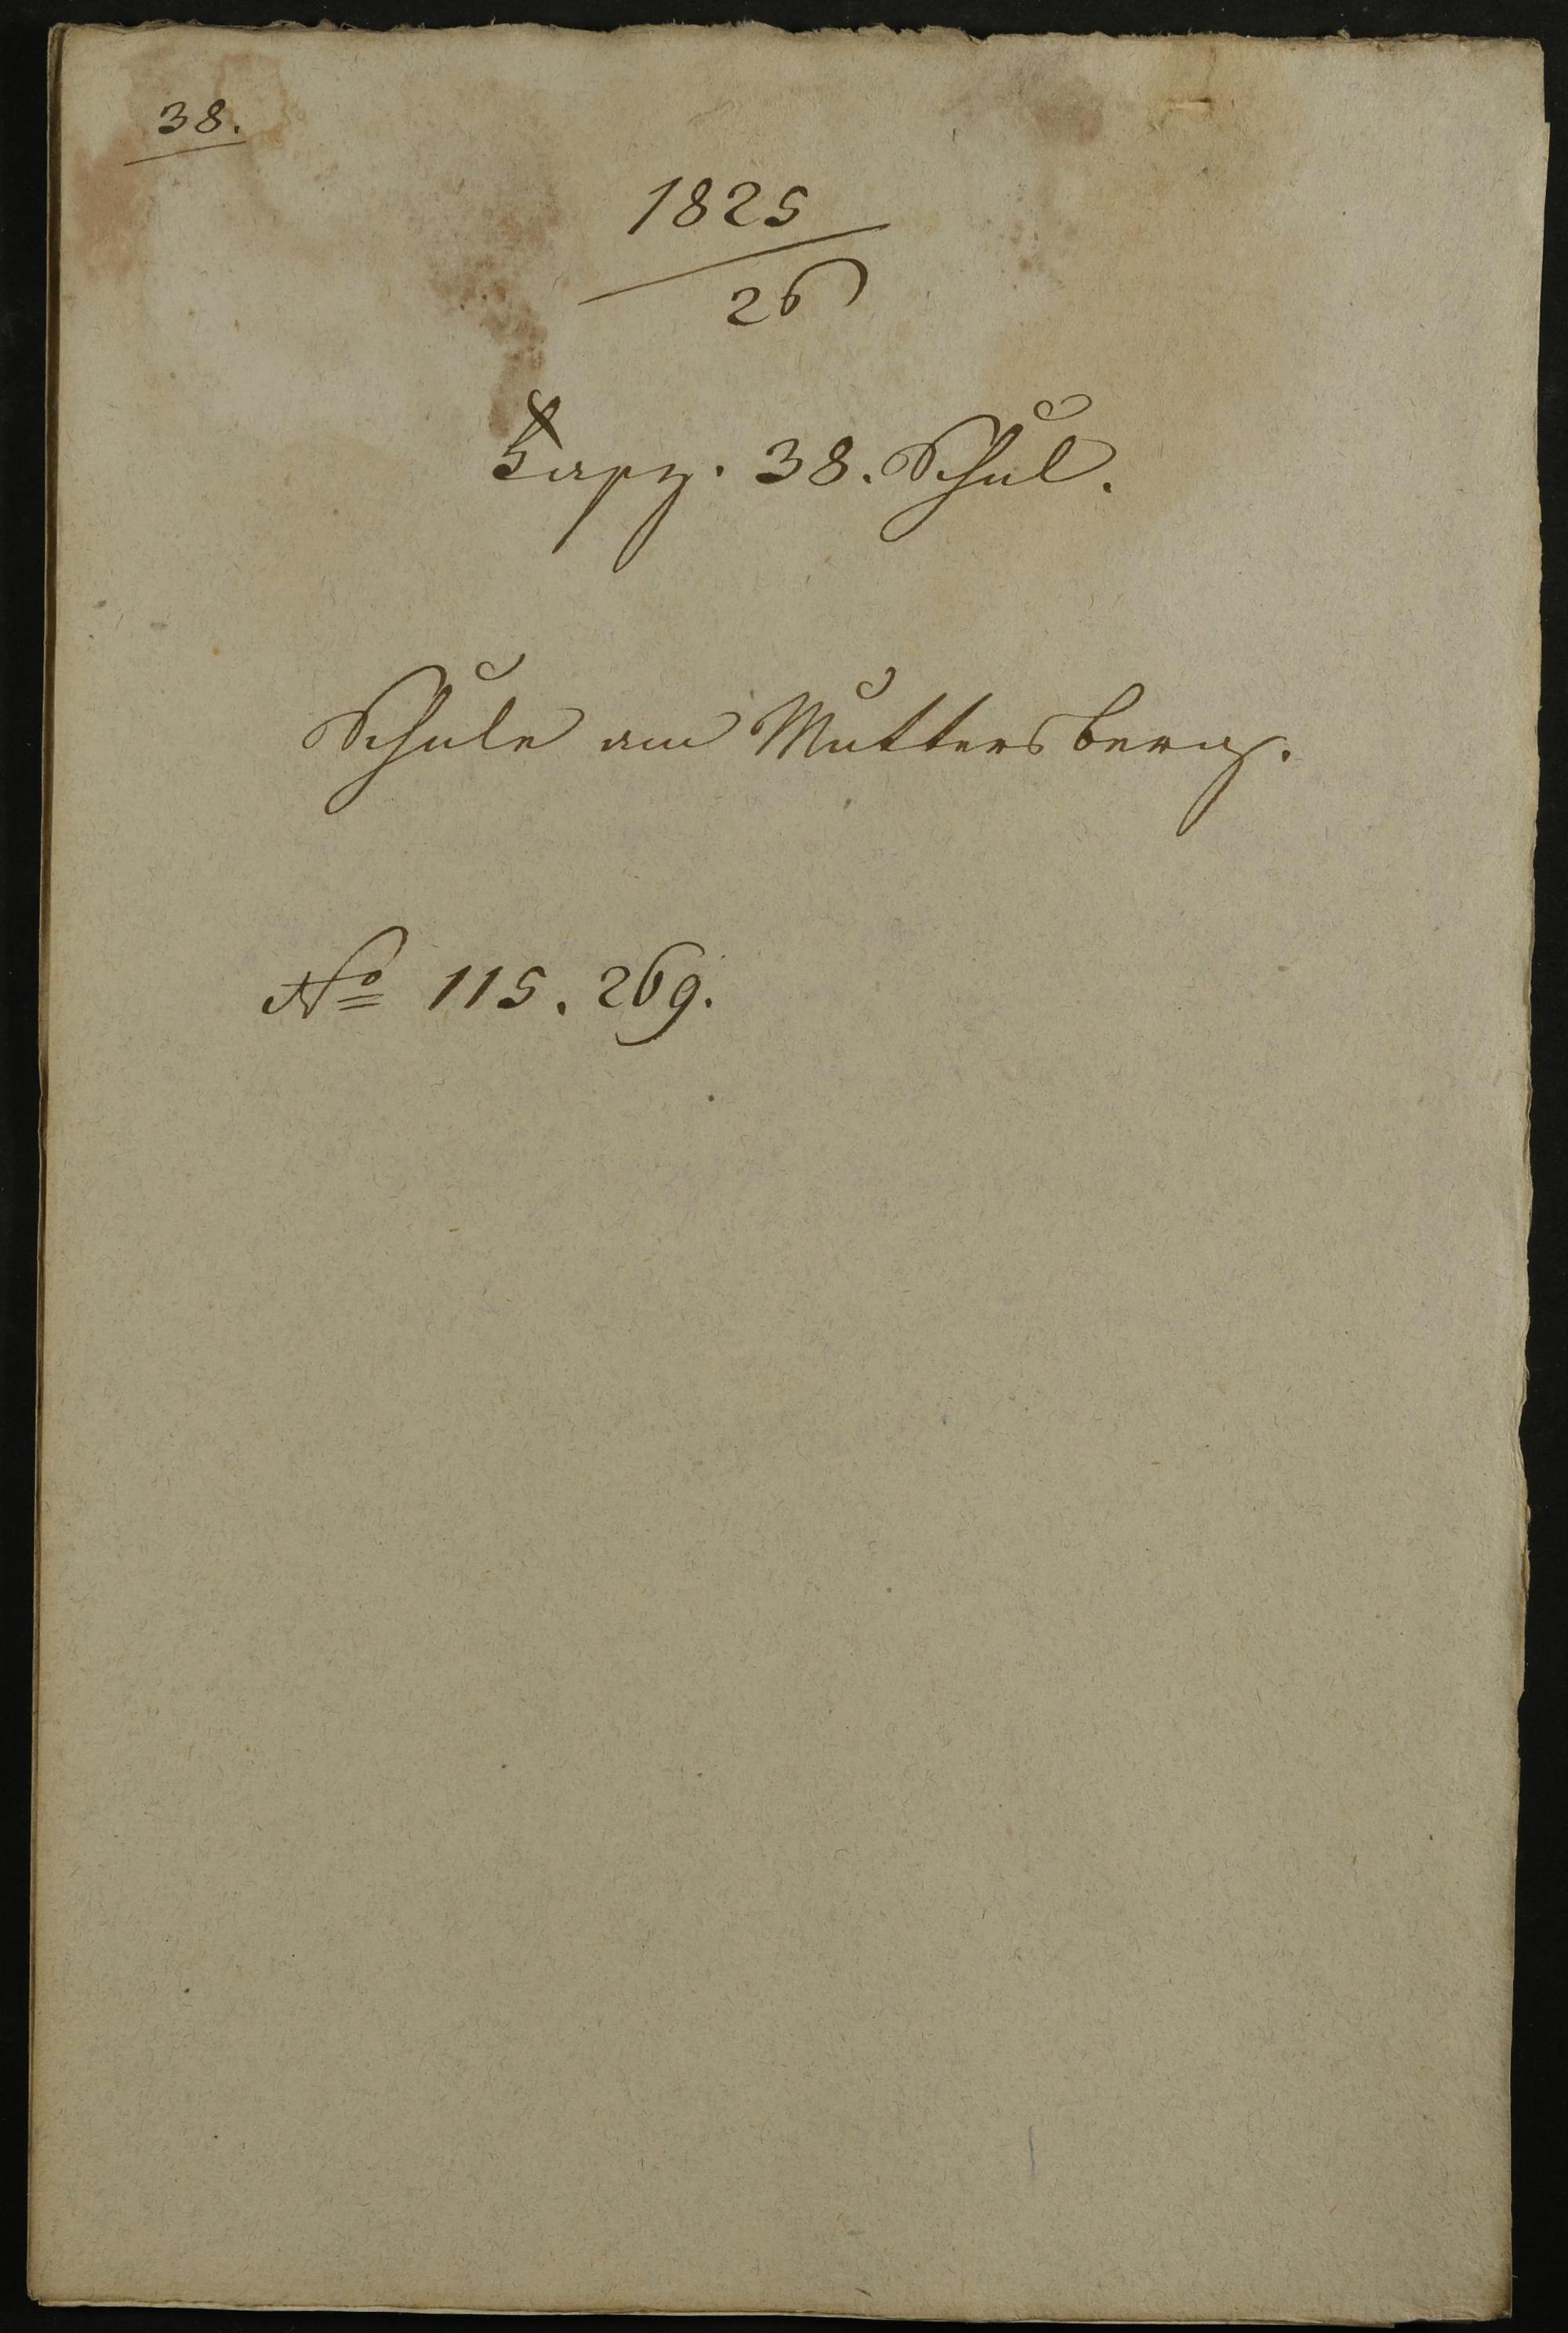 38.
1825
26
Fasz. 38. Schul.
Schule am Muttersberg.
No 115. 269.